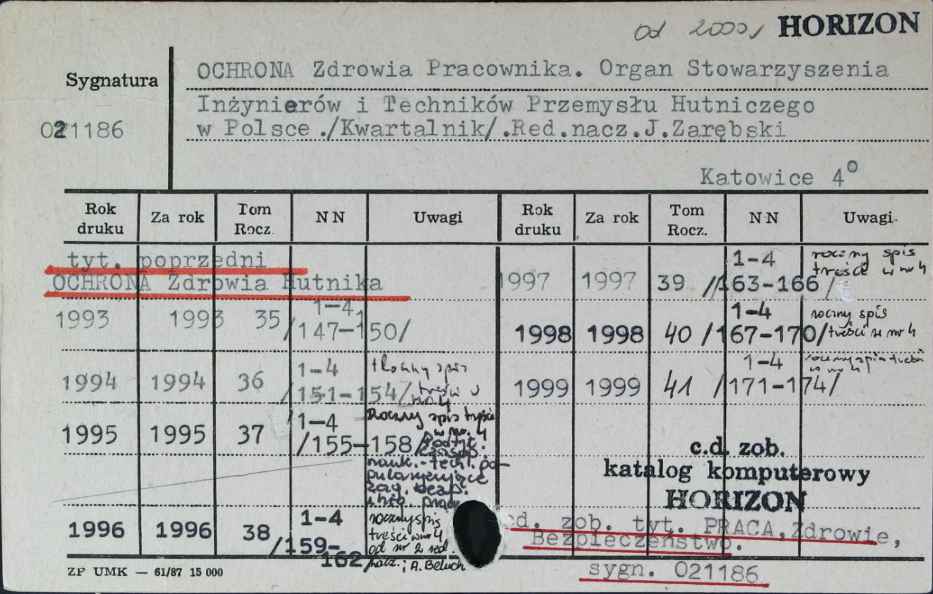 od 2000, HORIZON
Sygnatura
021186
OCHRONA Zdrowia Pracownika. Organ Stowarzyszenia
Inżynierów i Techników Przemysłu Hutniczego
w Polsce ./Kwartalnik/.Red.nacz.J.Zarębski
Katowice 4°
Rok druku Za rok Tom Rocz. N N Uwagi Rok druku Za rok Tom Rocz. N N Uwagi
tyt. poprzedni
OCHRONA Zdrowia Hutnika
1993 1993 35 1-4 /147-150/
1994 1994 36 1-4 /151-154/ spis treści w nr 4
1995 1995 37 1-4 /155-158/ Roczny spis treści w nr. 4
nauk.-techn. po-
pularyzujące
1996 1996 38 1-4 /159-162/ roczny spis treści w nr 4 od nr 2 red. nacz.; A. Beluch
1997 1997 39 1-4 /163-166/ roczny spis treści w nr 4
1998 1998 40 1-4 /167-170/ roczny spis treści w nr 4
1999 1999 41 1-4 /171-174/ roczny spis treści w nr 4
c.d. zob.
katalog komputerowy
HORIZON
cd. zob. tyt. PRACA,Zdrowie,
Bezpieczeństwo.
sygn. 021186
ZP UMK — 61/87 15 000